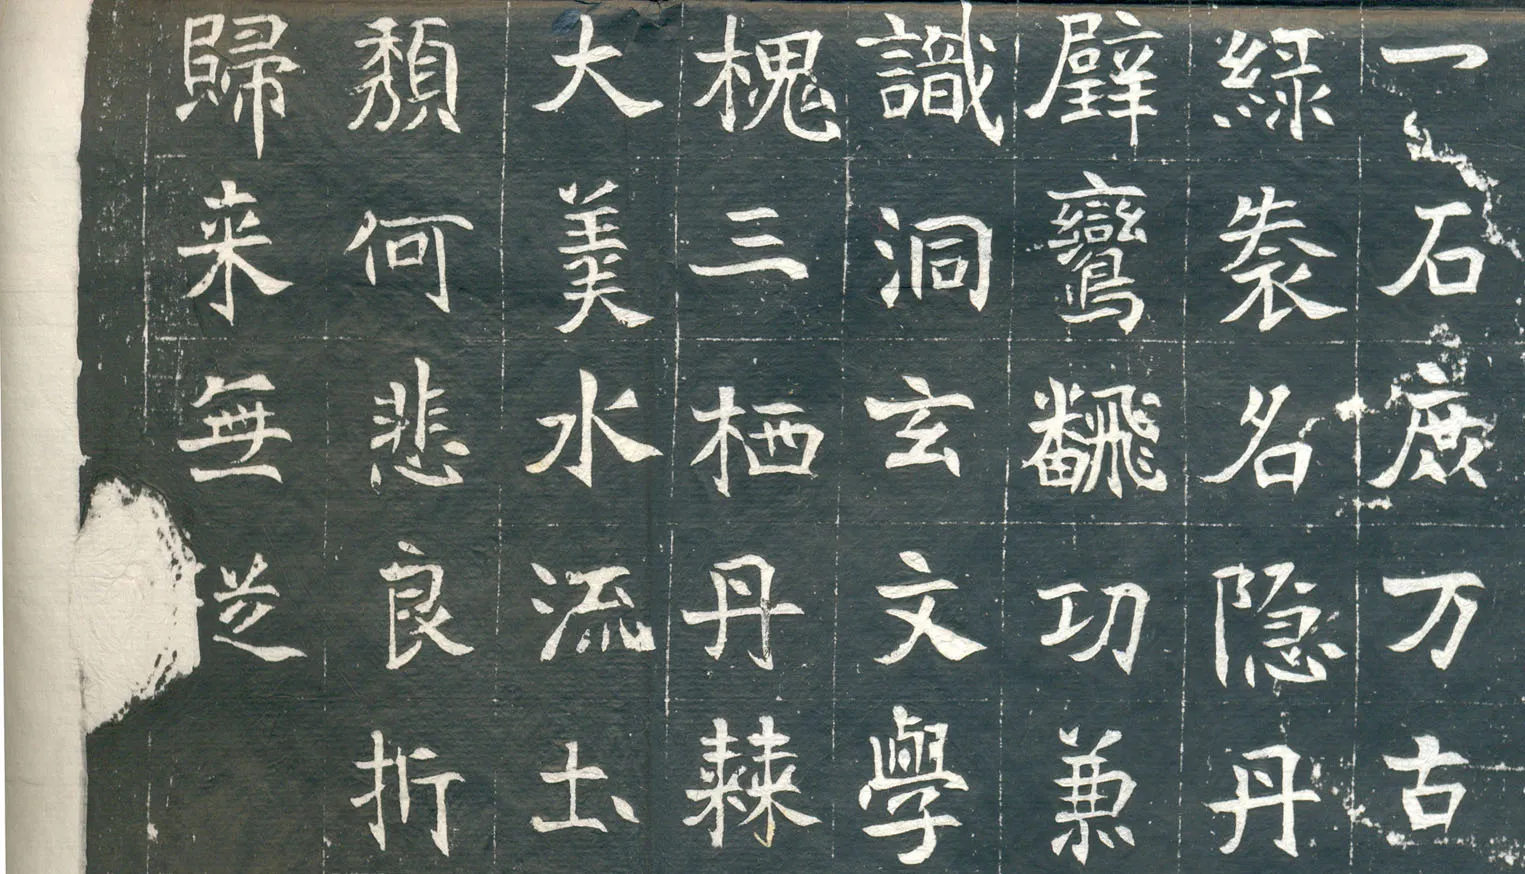 一石庻万古
緑袠名隐丹
辟鸞飜功兼
識洞玄文學
槐三栖丹棘
大美水流圡
頽何悲良折
歸来無